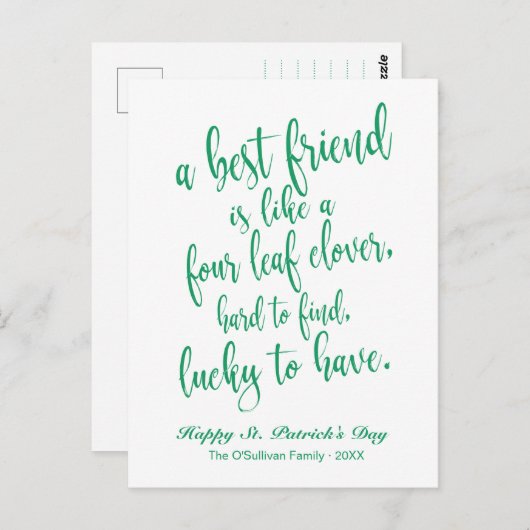 a best friend
is like a
four leaf clover,
hard to find,
lucky to have.
Happy St. Patrick's Day
The O'Sullivan Family · 20XX